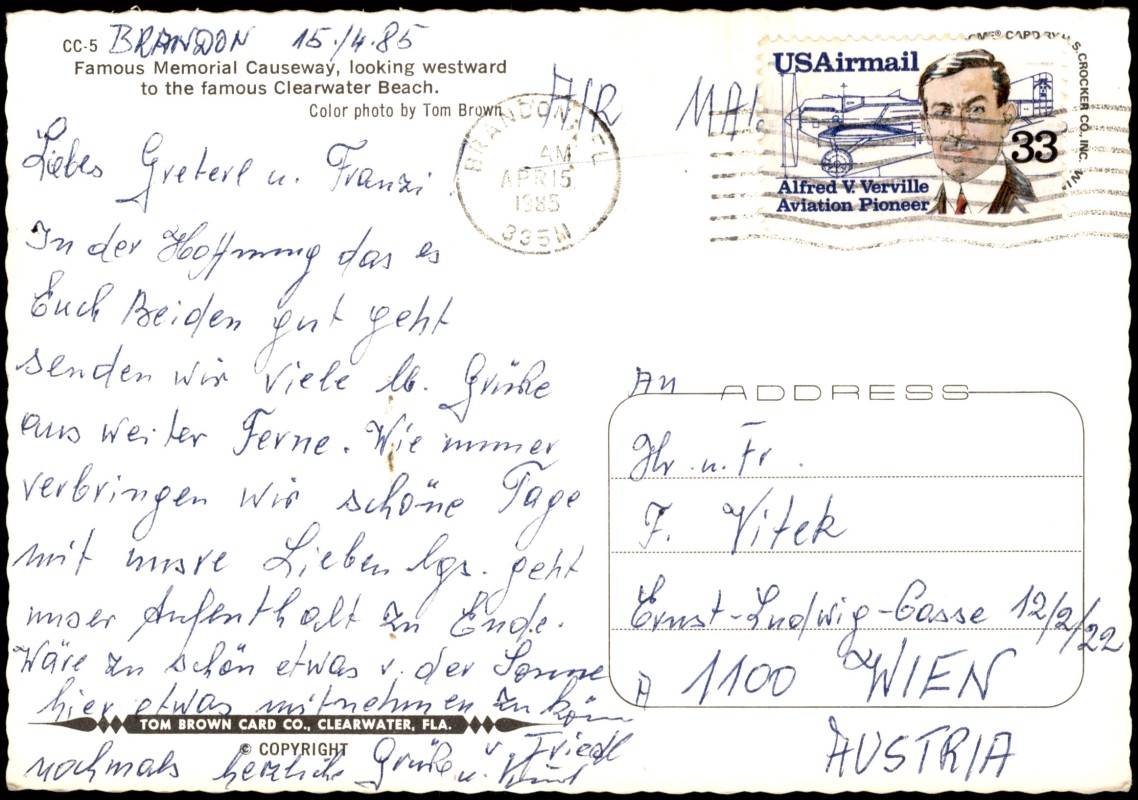 CC-5 BRANDON 15./4.85
Famous Memorial Causeway, looking westward
to the famous Clearwater Beach.
Color photo by Tom Brown
AIR MAIL
BRANDON, FL
AM
APR 15
1985
335M
USAirmail
33
Alfred V. Verville
Aviation Pioneer
S.CROCKER CO., INC.
Liebes Greterl u. Franzi
In der Hoffnung das es
Euch Beiden gut geht
senden wir viele lb. Grüße
aus weiter Ferne. Wie immer
verbringen wir schöne Tage
mit unsre Lieben lgs. geht
unser Aufenthalt zu Ende.
Wäre zu schön etwas v. der Sonne
hier etwas mitnehmen zu
nochmals herzliche Grüße v. Friedl
u.
TOM BROWN CARD CO., CLEARWATER, FLA.
© COPYRIGHT
An
ADDRESS
Hr. u. Fr.
F. Vitek
Ernst-Ludwig-Gasse 12/2/22
A 1100 WIEN
AUSTRIA